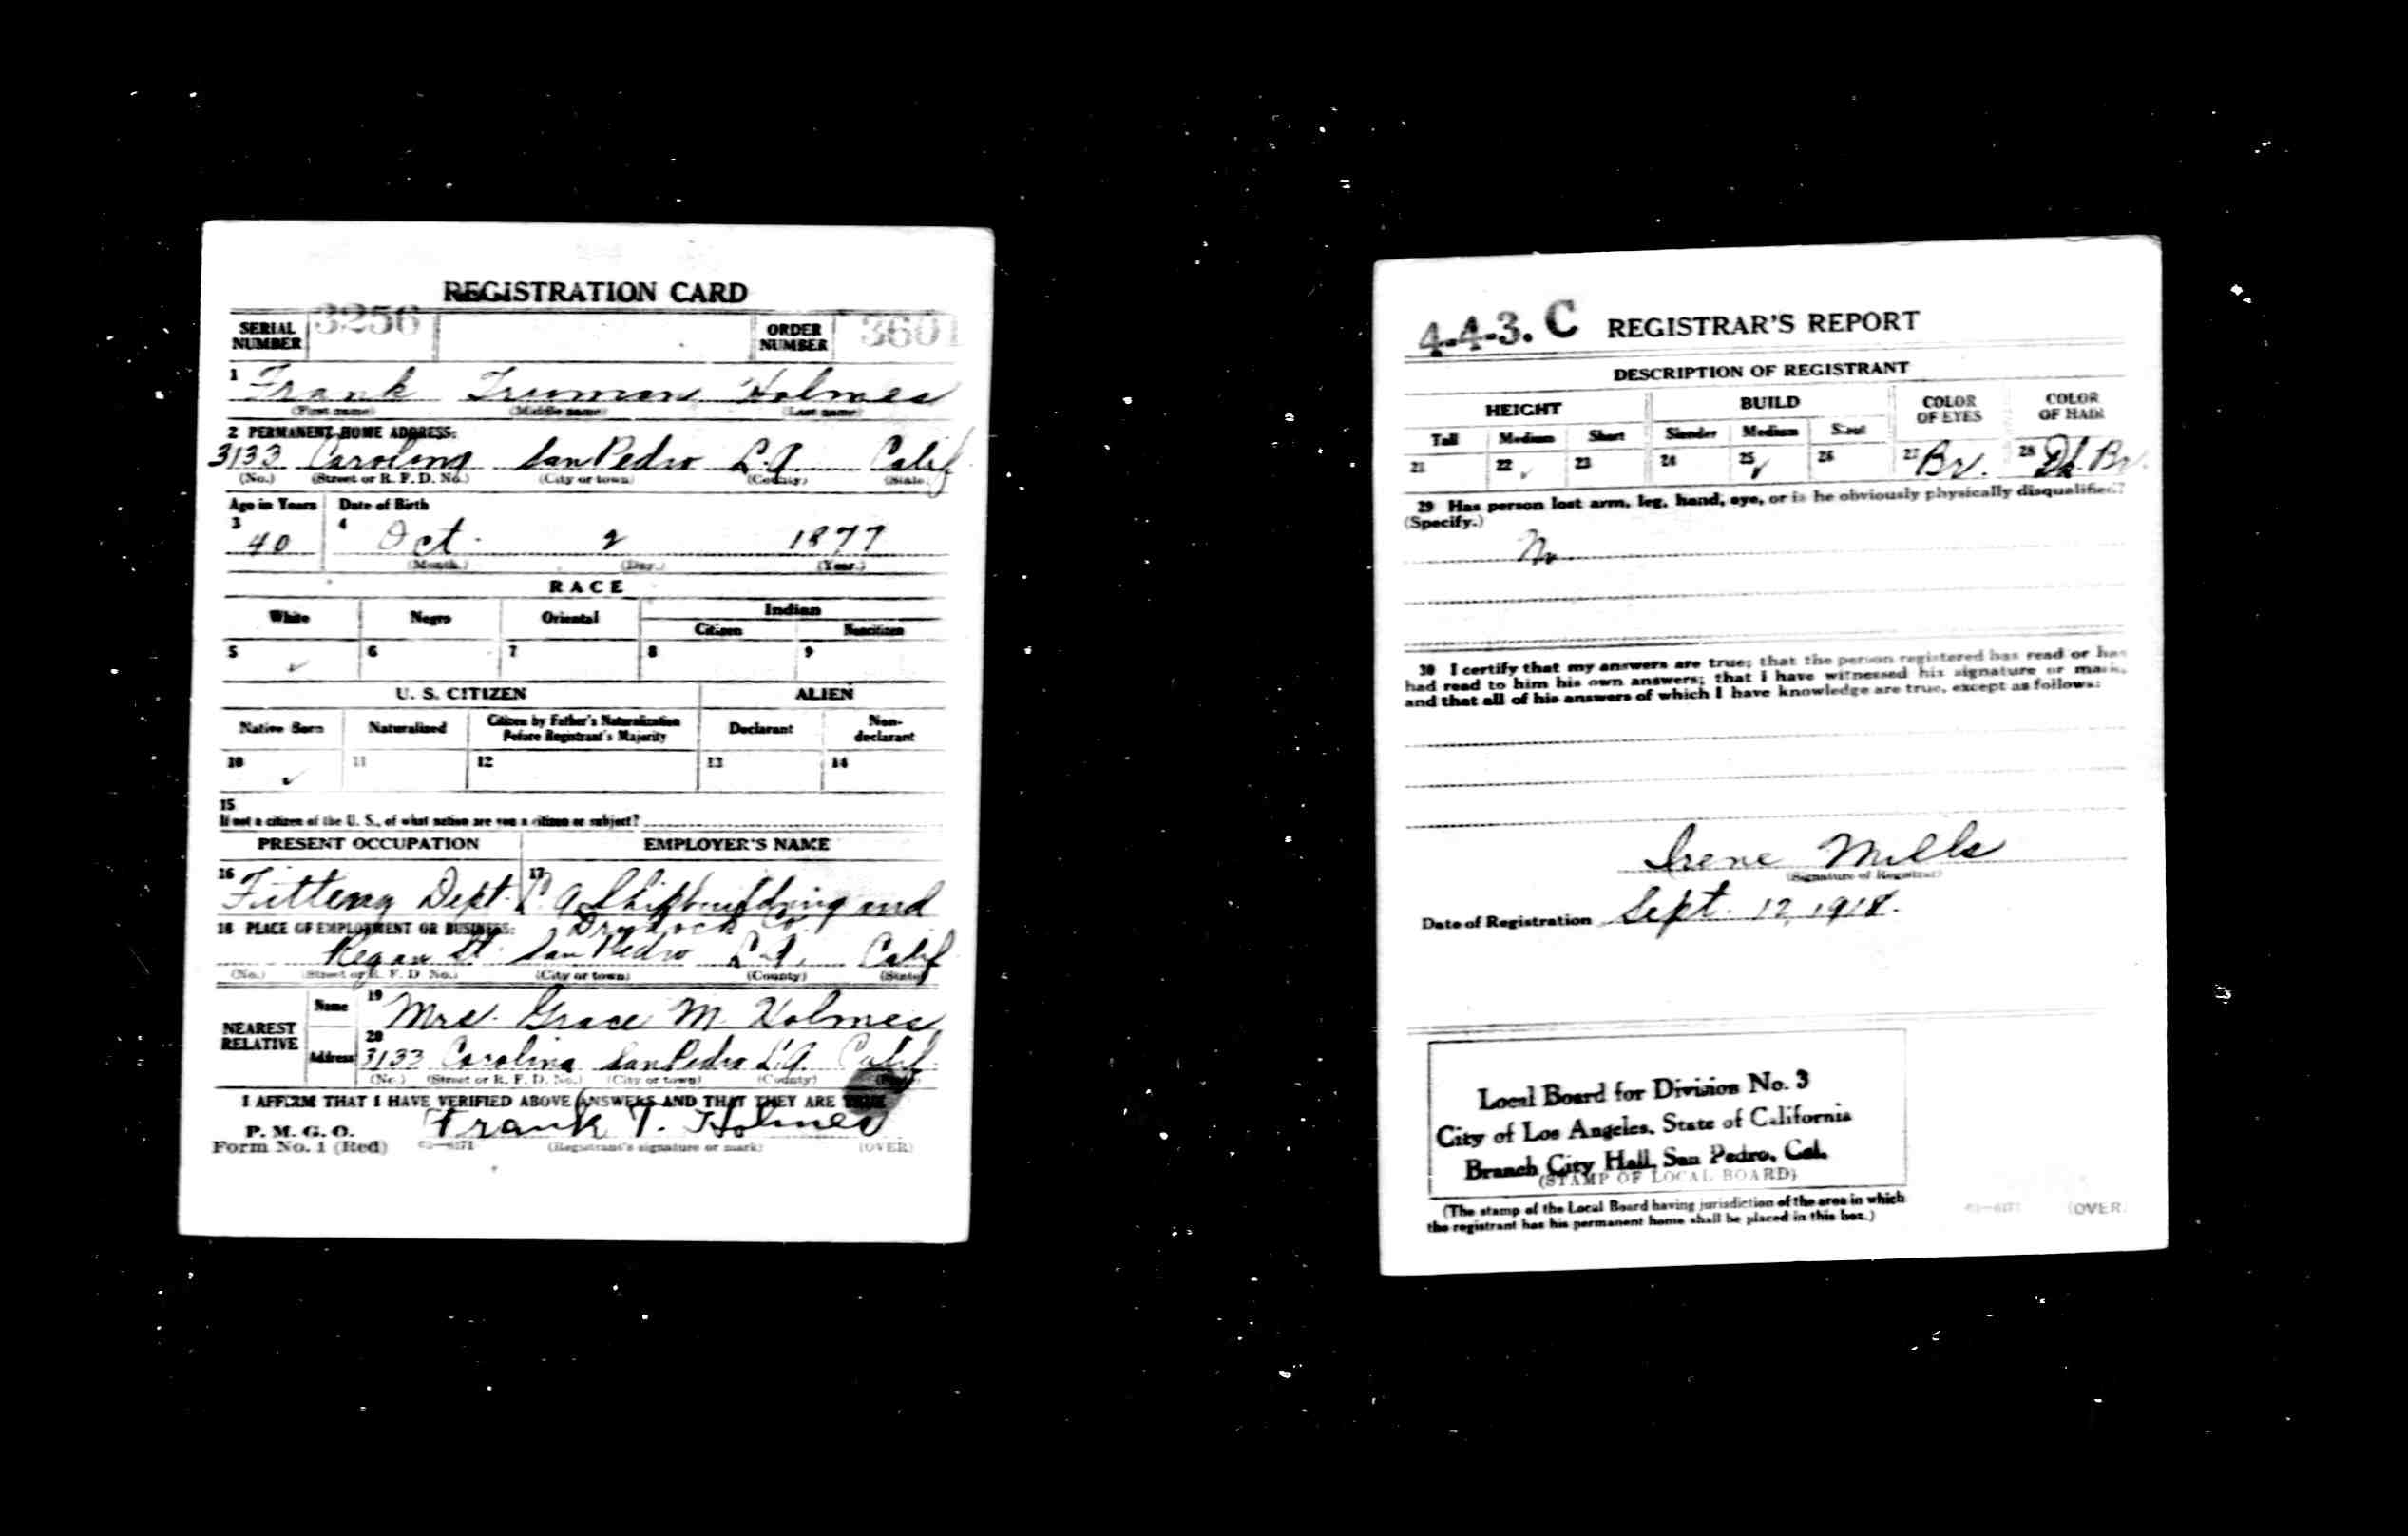 REGISTRATION CARD
SERIAL NUMBER 3256 ORDER NUMBER 3601
1 Frank Truman Holmes
(First name) (Middle name) (Last name)
2 PERMANENT HOME ADDRESS:
3133 Carolina San Pedro L.A. Calif
(No.) (Street or R. F. D. No.) (City or town) (County) (State)
Age in Years Date of Birth
3 40 4 Oct. 2 1877
(Month.) (Day.) (Year.)
RACE
White Negro Oriental Indian
Citizen Noncitizen
5 ✓ 6 7 8 9
U. S. CITIZEN ALIEN
Native Born Naturalized Citizen by Father's Naturalization Before Registrant's Majority Declarant Non-declarant
10 ✓ 11 12 13 14
15
If not a citizen of the U. S., of what nation are you a citizen or subject?
PRESENT OCCUPATION EMPLOYER'S NAME
16 Fitting Dept. 17 L.A. Shipbuilding and
Drydock Co.
18 PLACE OF EMPLOYMENT OR BUSINESS:
Regan St. San Pedro L.A. Calif
(No.) (Street or R. F. D. No.) (City or town) (County) (State)
NEAREST RELATIVE
Name 19 Mrs. Grace M. Holmes
Address 20 3133 Carolina San Pedro L.A. Calif.
(No.) (Street or R. F. D. No.) (City or town) (County)
I AFFIRM THAT I HAVE VERIFIED ABOVE ANSWERS AND THAT THEY ARE TRUE
P. M. G. O.
Form No. 1 (Red) Frank T. Holmes
03—6171 (Registrant's signature or mark) (OVER)
4-4-3. C REGISTRAR'S REPORT
DESCRIPTION OF REGISTRANT
HEIGHT BUILD COLOR OF EYES COLOR OF HAIR
Tall Medium Short Slender Medium Stout
21 22 ✓ 23 24 25 ✓ 26 27 Br. 28 Dk. Br.
29 Has person lost arm, leg, hand, eye, or is he obviously physically disqualified?
(Specify.)
No
30 I certify that my answers are true; that the person registered has read or has
had read to him his own answers; that I have witnessed his signature or mark,
and that all of his answers of which I have knowledge are true, except as follows:
Irene Mills
(Signature of Registrar)
Date of Registration Sept. 12, 1918.
Local Board for Division No. 3
City of Los Angeles, State of California
Branch City Hall, San Pedro, Cal.
(STAMP OF LOCAL BOARD)
(The stamp of the Local Board having jurisdiction of the area in which
the registrant has his permanent home shall be placed in this box.)
03—6171 (OVER)